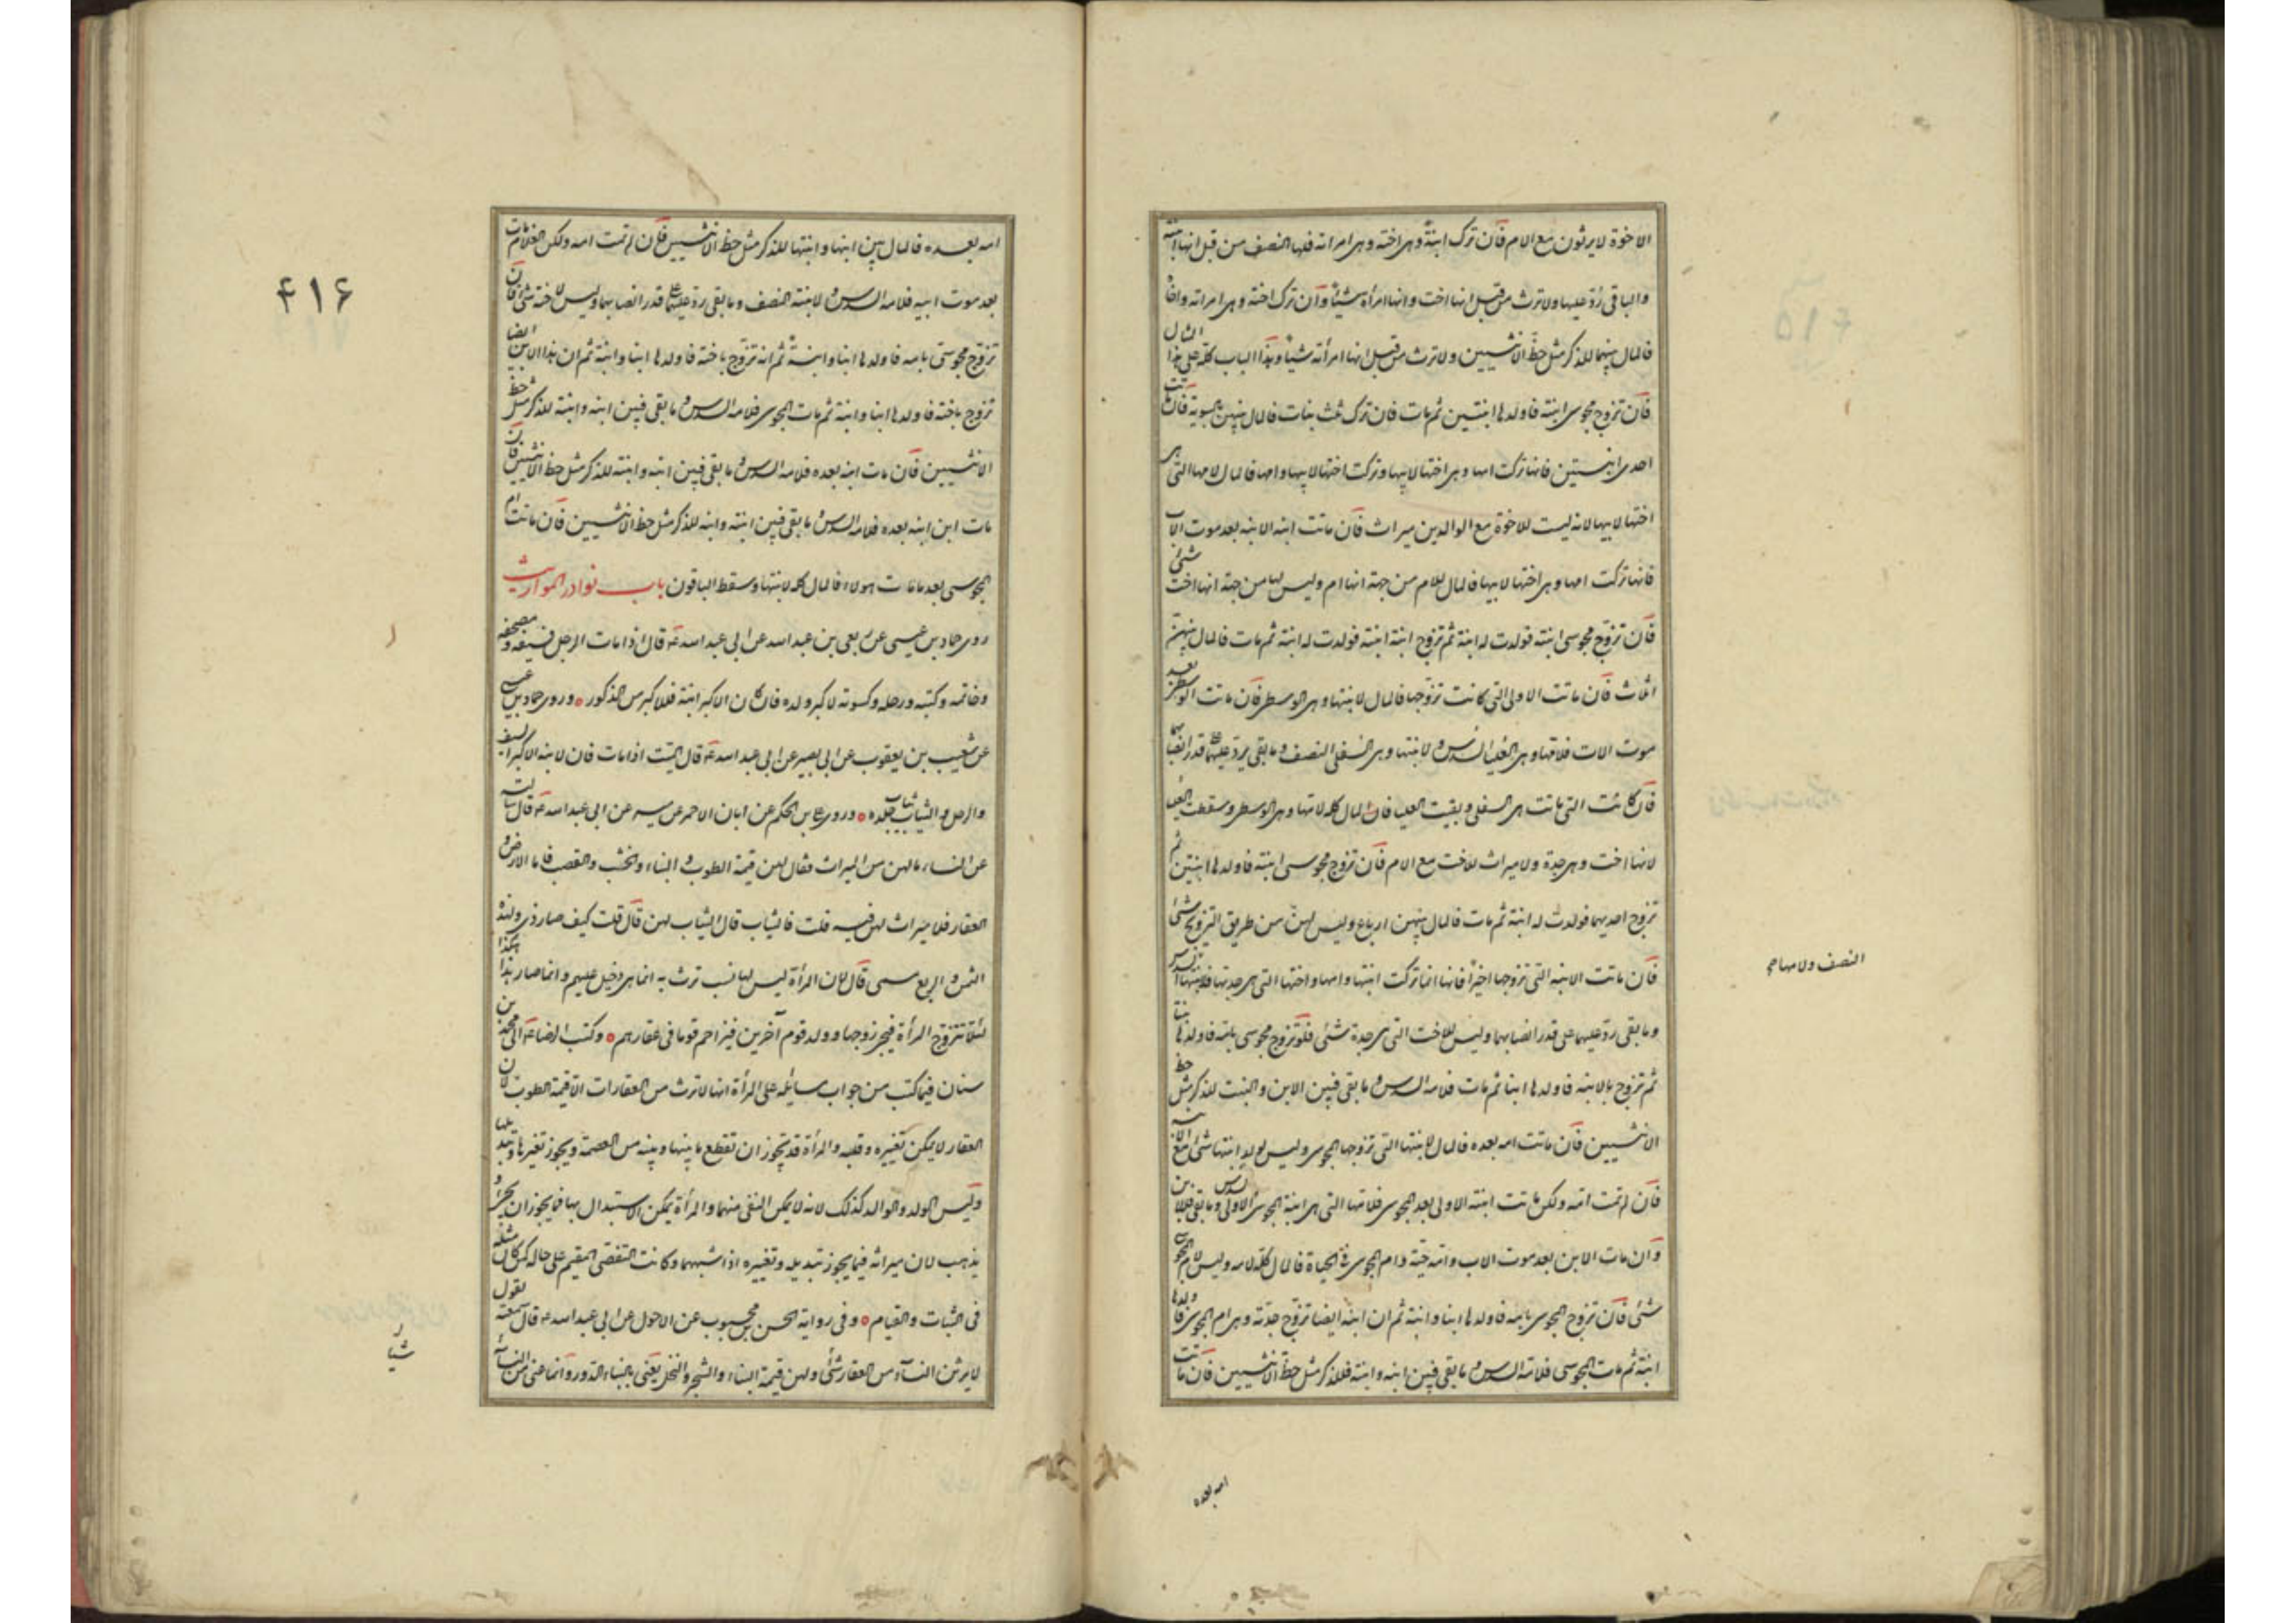 الاخوة لا يرثون مع الام فان ترك ابنة وهى اخته وهى امراته فلها النصف من قبل انها ابنته
والباقى رد عليها ولا ترث من قبل انها اخت وانها امرأة شيئا وان ترك اخته وهى امراته واخاه
فالمال بينهما للذكر مثل حظ الانثيين ولا ترث من قبل انها امرأته شيئا وهذا الباب كله على هذا المثال
فان تزوج مجوسى ابنته فاولدها ابنتين ثم مات فان ترك ثلث بنات فالمال بينهن بالسوية فان ماتت
احدى ابنتين فانها تركت امها وهى اختها لابيها وتركت اختها لابيها وامها فالمال لامها التى هى
اختها لابيها لانه ليست للاخوة مع الوالدين ميراث فان ماتت ابنة الابنه بعد موت الاب
فانها تركت امها وهى اختها لابيها فالمال للام من جهة انها ام وليس لها من جهة انها اخت شئ
فان تزوج مجوسى ابنته فولدت له ابنة ثم تزوج ابنة ابنته فولدت له ابنة ثم مات فالمال بينهن
اثلاث فان ماتت الاولى التى كانت تزوجها فالمال لابنتها وهى الوسطى فان ماتت الوسطى بعد
موت الاب فلامها وهى العليا السدس ولابنتها وهى السفلى النصف وما بقى يرد عليهما على قدر انصبائهما
فان كانت التى ماتت هى السفلى وبقيت العليا فان المال كله لامها وهى الوسطى وسقطت العليا
لانها اخت وهى جدة ولا ميراث للاخت مع الام فان تزوج مجوسى ابنته فاولدها ابنتين ثم
تزوج احديهما فولدت له ابنة ثم مات فالمال بينهن ارباع وليس لهن من طريق التزويج شئ
فان ماتت الابنه التى تزوجها اخيرا فانها انما تركت ابنتها وامها واختها التى هى جدتها فلابنتها السدس
النصف ولامها صح
وما بقى رد عليهما على قدر انصبائهما وليس للاخت التى هى جدة شئ فلو تزوج مجوسى بامه فاولدها بنتا
ثم تزوج بالابنه فاولدها ابنا ثم مات فلامه السدس وما بقى فبين الابن والبنت للذكر مثل حظ
الانثيين فان ماتت امه بعده فالمال لابنتها التى تزوجها المجوسى وليس لولد ابنتها شئ مع الابنه
فان لم تمت امه ولكن ماتت ابنته الاولى بعد المجوسى فلامها التى هى ابنة المجوسى الاولى السدس وما بقى فللابن
وان مات الابن بعد موت الاب وامه حية وام المجوسى فى الحياة فالمال كله لامه وليس لام المجوسى
شئ فان تزوج المجوسى بامه فاولدها ابنا وابنة ثم ان ابنه ايضا تزوج جدته وهى ام المجوسى فاولدها
ابنة ثم مات المجوسى فلامه السدس وما بقى فبين ابنه وابنته فللذكر مثل حظ الانثيين فان ماتت
امه بعده
۴۱۶
امه بعده فالمال بين ابنها وابنتها للذكر مثل حظ الانثيين فان لم تمت امه ولكن الغلام مات
بعد موت ابيه فلامه السدس ولابنته النصف وما بقى رد عليهما على قدر انصبائهما وليس لاخته شئ فان
تزوج مجوسى بامه فاولدها ابنا وابنة ثم انه تزوج باخته فاولدها ابنا وابنة ثم ان هذا الابن ايضا
تزوج باخته فاولدها ابنا وابنة ثم مات المجوسى فلامه السدس وما بقى فبين ابنه وابنته للذكر مثل حظ
الانثيين فان مات ابنه بعده فلامه السدس وما بقى فبين ابنه وابنته للذكر مثل حظ الانثيين فان
مات ابن ابنه بعده فلامه السدس وما بقى فبين ابنته وابنه للذكر مثل حظ الانثيين فان ماتت ام
المجوسى بعد ما مات هولاء فالمال كله لابنتها وسقط الباقون باب نوادر المواريث
روى حماد بن عيسى عن ربعى بن عبد الله عن ابى عبد الله ع قال اذا مات الرجل فسيفه ومصحفه
وخاتمه وكتبه ورحله وكسوته لاكبر ولده فان كان الاكبر ابنة فللاكبر من الذكور وروى حماد بن عيسى
عن شعيب بن يعقوب عن ابى بصير عن ابى عبد الله ع قال الميت اذا مات فان لابنه الاكبر السيف
والرحل والثياب ثياب جلده وروى على بن الحكم عن ابان الاحمر عن ميسر عن ابى عبد الله ع قال سالته
عن النساء ما لهن من الميراث فقال لهن قيمة الطوب والبناء والخشب والقصب فاما الارض و
العقار فلا ميراث لهن فيه قلت فالثياب قال الثياب لهن قال قلت كيف صار ذى ولهذه
الثمن والربع مسمى قال لان المرأة ليس لها نسب ترث به انما هى دخيل عليهم وانما صار هذا هكذا
لئلا تتزوج المرأة فيجئ زوجها وولد قوم آخرين فيزاحم قوما فى عقارهم وكتب الرضا ع الى محمد بن
سنان فيما كتب من جواب مسائله علة المرأة انها لا ترث من العقارات الا قيمة الطوب لان
العقار لا يمكن تغييره وقلبه والمرأة قد يجوز ان تقطع ما بينها وبينه من العصمة ويجوز تغيرها وتبديلها
وليس الولد والوالد كذلك لانه لا يمكن التفصى منهما والمرأة يمكن الاستبدال بها فما يجوز ان يجئ و
يذهب لان ميراثه فيما يجوز تبديله وتغييره اذا اشبههما وكانت التفصى المقيم على حاله كمن كان مثله
فى الثبات والقيام وفى رواية الحسن بن محبوب عن الاحول عن ابى عبد الله ع قال سمعته يقول
لا يرثن النساء من العقار شئ ولهن قيمة البناء والشجر والنخل يعنى بالبناء الدور وانما عنى من النساء
شيئا